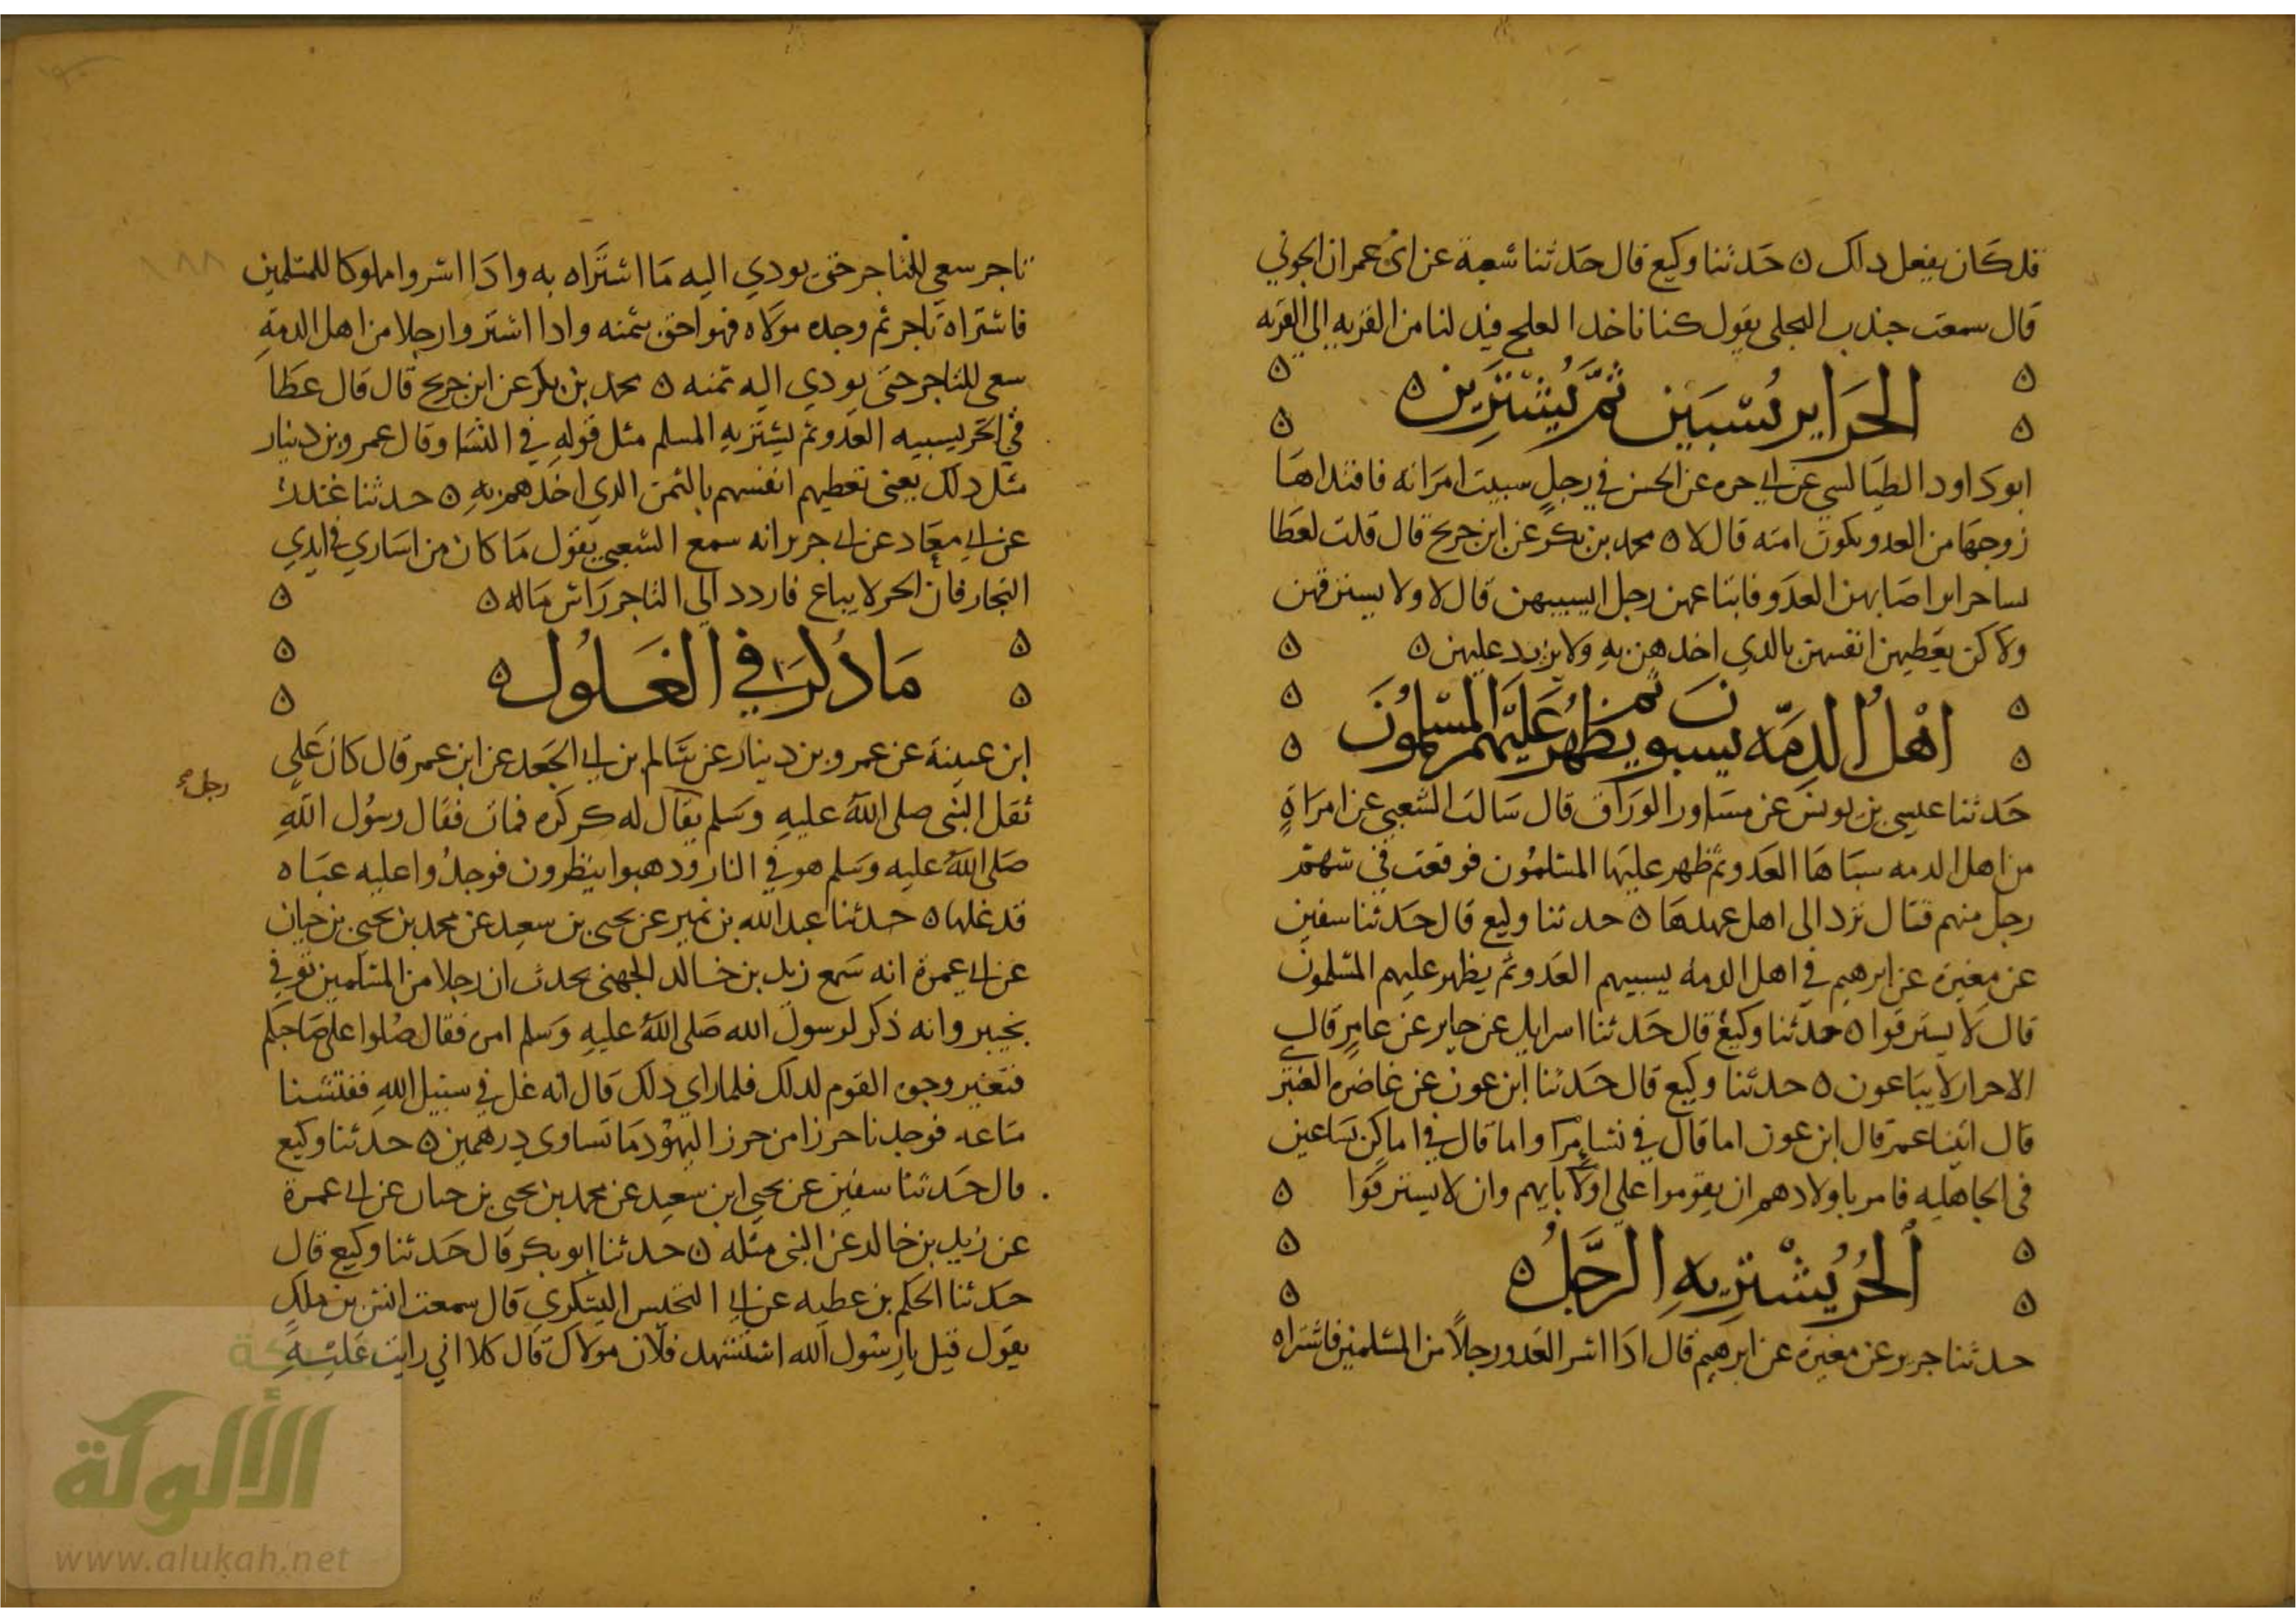 قد كان يفعل دلك ٥ حَدثنا وكيع قال حَدثنا شعبة عن ابى عمران الجوني
قال سمعت جندب البجلى يقول كنا ناخد العلج فيدلنا من القريه الي القريه
الحَرَاير يُسْبَين ثمَّ يُشتَرِين ٥
ابو دَاود الطيَالسي عن ابي حره عن الحسن في رجلٍ سبيت امرَاته فافتداهَا
زوجهَا من العدو يكون امته قال لا ٥ محمد بن بكر عن ابن جريح قال قلت لعَطا
نسا حراير اصَابهن العدَو فابتاعهن رجل ايسيبهن قال لا ولا يسترقهن
ولاكن يعَطيهن انفسهن بالدي اخدهن بهِ ولا يزيد عليهن ٥
اهْل الدمّه يسبون ثم يظهرُ عَليْهم المسْلموُنَ
حَدثنا عيسى بن يونسَ عن مسَاور الورَاق قال سَالت الشعبي عن امرَاةٍ
من اهل الدمه سبَاهَا العَدو ثم ظهر عليهَا المسَلموُن فوقعت في سَهمٍ
رجل منهم فقال تردَ الى اهل عهدهَا ٥ حدثنا وكيع قال حَدثنا سفين
عن مغيرة عن ابرهيم في اهل الدمه يسبيهم العَدو ثم يظهر عليهم المسَلمون
قال لَا يسترقوا ٥ حدثنا وكيعْ قال حَدثنا اسرايل عن جابر عن عامرٍ قال
الاحرار لا يبَاعون ٥ حدثنا وكيع قال حَدثنا ابن عون عن غاضره العنبري
قال اتينا عمر قال ابن عون اما قال في نسَا مهرا واما قال في اما كن يسَاعين
في الجاهليه فامر باولادهم ان يقوموا علي ابايهم وان لا يسترقوا ٥
اَلحُر يُشْتريهِ الرَّجُلُ ٥
حدثنا جرير عن مغيرة عن ابرهيم قال ادَا اسر العَدو رجلاً من المسَلمين فاشتراه
تاجر سعي للتاجر حتى يودي اليه مَا اشترَاه به وادَا اسروا مملوكا للمسَلمين
فاشترَاه تاجر ثم وجده موَلاه فهو احق بثمنه وادا اشتروا رجلا من اهل الدمَةِ
سعي للتاجر حتى يودي اليه ثمنه ٥ محمد بن بكر عن ابن جريح قال قال عَطا
في الحَر يسبيه العدَو ثم يشتَريهِ المسلم مثل قوله في النسَا وقال عمرو بن دينار
مثل دلك يعني تعطيهم انفسهم بالثمن الدي اخدهم بهِ ٥ حدثنا غندَر
عن ابي معَاد عن ابي حريز انه سمع الشعبي يقول مَا كان من اسَاري في ايدي
التجار فان الحر لا يباع فاردد الي التاجر رَاسَ مَاله ٥
مَا دُكرَ في الغَلوُل ٥
ابن عيينة عن عمرو بن دينار عن سَالم بن ابي الجَعد عن ابن عمر قال كان عَلى
رجل
ثقل النبى صلى اللهُ عليهِ وسَلم يقال له كركره فمات فقال رسوُل اللهِ
صَلى اللهُ عليه وسَلم هو في النار ودهبوا ينظرون فوجدُوا عليه عبَاه
قد غلها ٥ حدثنا عبد الله بن نمير عن يحيى بن سعيد عن محمد بن يحيى بن حبان
عن ابي عمرة انه سَمع زيد بن خالد الجهني يحدث ان رجلا من المسَلمين توفي
بخيبر وانه ذكر لرسول الله صَلى اللهُ عليهِ وسَلم امره فقال صَلوا على صَاحبكم
فتغير وجوه القوم لدلك فلما راي دلك قال انه غل في سبيل اللهِ ففتشنا
متاعه فوجدنا حرزا من حرز اليهوُد مَا تساوي درهمين ٥ حدثنا وكيع
قال حَدثنا سفين عن يحيى ابن سعيد عن محمد بن يحيى بن حبان عن ابي عمرة
عن زيد بن خالد عن النبي مثله ٥ حدثنا ابو بكر قال حَدثنا وكيع قال
حَدثنا الحَكم بن عطيه عن ابي المخيس اليشكري قال سمعت انسَ بن ملك
يقوَل قيل يا رسوُل الله اسْتشهد فلَان موَلاك قال كلا اني رايت عَليْهِ
شبكة
الألوكة
www.alukah.net